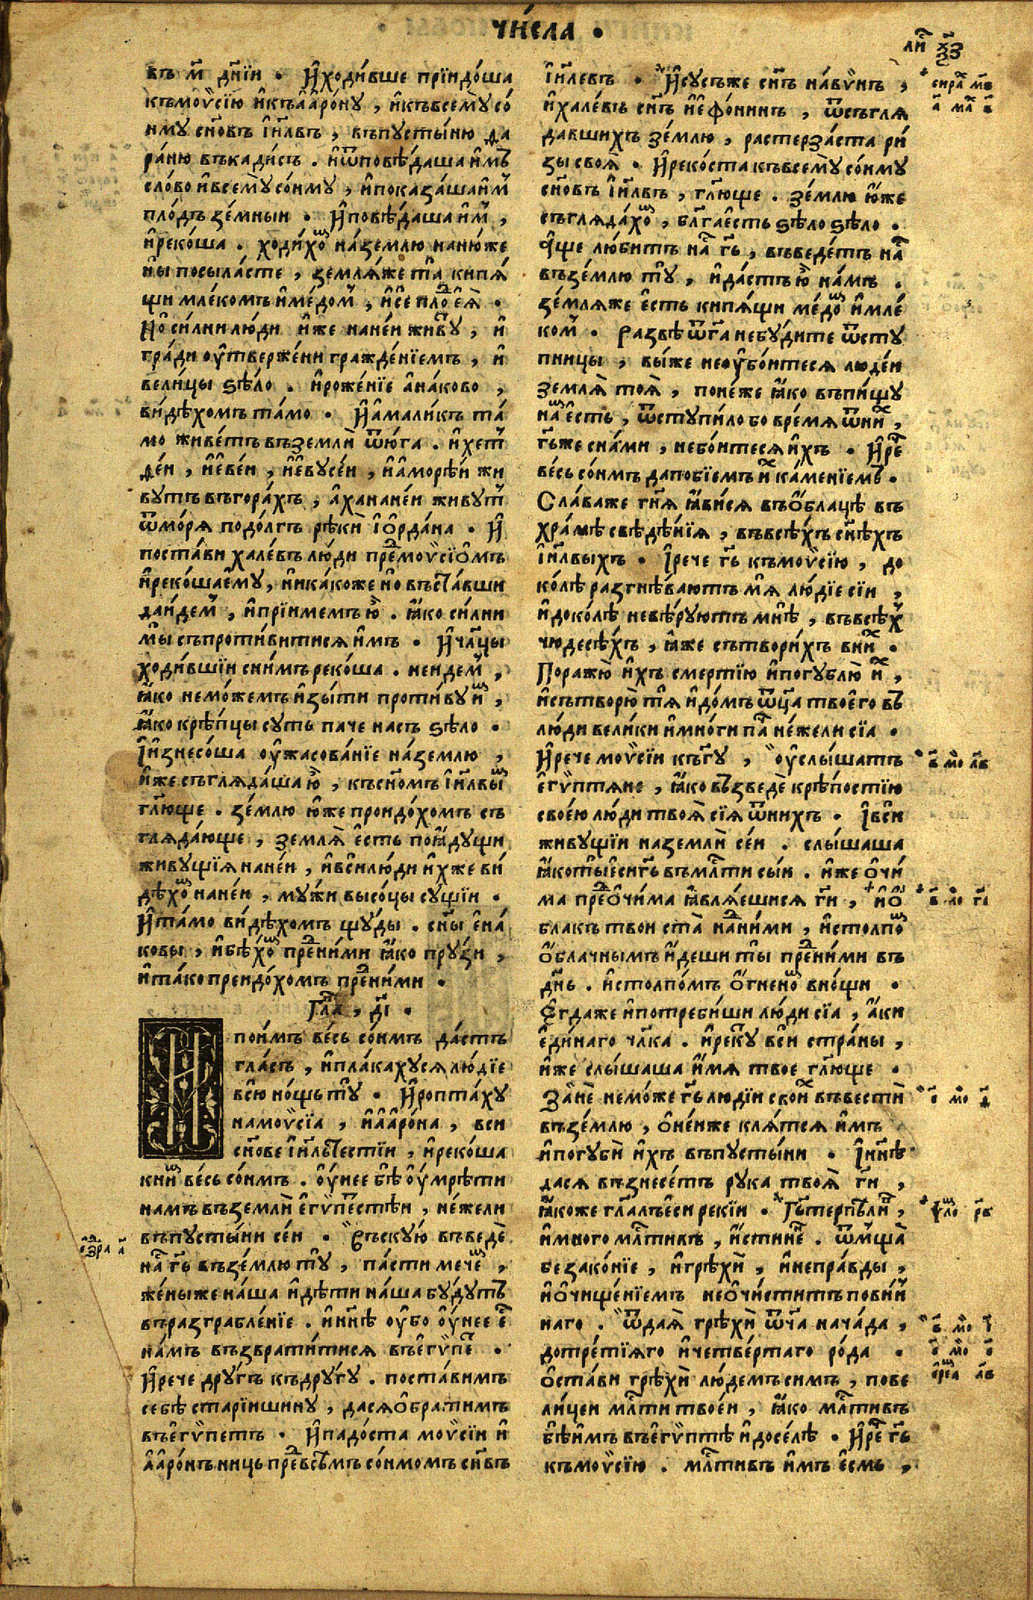 чи́сла .
ли҇ х҃з
въ м҃ дн҃їи . И҆ходи́вше прїидо́ша
къмоѷсїю и҆къа҆аро́ну , и҆къвсемꙋ со́
нмꙋ сн҃овъ і҆и҃лвъ , въпꙋсты́ню да
ра́ню въкади́съ . и҆ѿповѣ́даша и҆мъ
сло́во и҆всемꙋ со́нмꙋ , и҆показа́шаи҆м̾
пло́дъ зе́мныи . И҆повѣ́даша и҆м̾ ,
и҆реко́ша . ходи́хо̾ на́землю нанюже
ны посыла́сте , земля́же та̀ кипя́
щи млеко́мъ и҆ме́дом̾ , и҆се́ пло̾ еѧ̀ .
Но си́лни лю́ди и҆же нане́и живꙋ̾ , и҆
гра́ди оу҆тверже́ни гражде́нїемъ , и҆
вели́цы ѕѣло̀ . и҆роже́нїе а҆на́ково ,
ви́дѣхомъ та́мо . И҆а҆мали́къ та́
мо живе́тъ въземли̾ ѿю́га . и҆хет̾
де́и , и҆е҆ве́и , и҆е҆вꙋсе́и , и҆а҆море́и жи
вꙋтъ въгора́хъ , а҆ханане́и живꙋт̾
ѿмо́ря подо́лгъ рѣки̾ і҆ѻ҆рда́на . И҆
поста́ви хале́въ лю́ди пре҇моѷсїо́мъ
и҆реко́шаемꙋ̀ , и҆ника́коже но въста́вши
да́и́дем̾ , и҆прїи́мемъ ю҆̀ . ꙗ҆́ко си́лни
мы̀ съпроти́витися и҆́мъ . И҆ча҃цы
ходи́вшїи сни́мъ реко́ша . неи́дем̾ ,
ꙗ҆́ко немо́жемъ и҆зы́ти проти́вꙋ и҆̾ ,
ꙗ҆́ко крѣ́пцы сꙋть па́че на́съ ѕѣло̀ .
І҆и҆знесо́ша оу҆жасова́нїе на́землю ,
и҆же съгляда́ша ю҆̀ , късн҃омъ і҆и҃лвы̾
гл҃юще . зе́млю ю҆́же проидо́хомъ съ
гляда́юще , земля̀ е҆́сть поꙗ҆дꙋщи
живꙋ́щїя нане́и , и҆вси лю́ди и҆́хже ви́
дѣхо̾ нане́и , мꙋ́жи высо́цы сꙋ́щїи .
И҆та́мо ви́дѣхомъ щꙋды . сн҃ы е҆на́
ковы , и҆бѣ́хо̾ пре҇ни́ми ꙗ҆́ко прꙋ́зи ,
и҆та́ко преидо́хомъ пре҇ни́ми .
Гла҇ , д҃і .
поимъ ве́сь со́имъ да́стъ
гла́съ , и҆пла́кахꙋся лю́дїе
всю но́щь тꙋ̀ . И҆ропта́хꙋ
намоѷсі́а , и҆а҆аро́на , вси
сн҃ове і҆и҃льтестїи , и҆реко́ша
кни̾ ве́сь со́нмъ . оу҆́нее бѣ̀ оу҆мрѣ́ти
на́мъ въземли̾ е҆гѵпетстѣи , не́жели
въпꙋсты́ни се́и . Въскꙋ́ю въведѐ
на҇ г҃ь въземлю тꙋ̀ , па́сти мече̾ ,
же́ныже на́ша и҆дѣ́ти на́ша бꙋ́дꙋтъ
въразграбле́нїе . и҆нн҃ѣ оу҆бо оу҆́нее е҇
на́мъ възврати́тися въе҆гѵпе̾ .
И҆рече дрꙋ́гъ кдрꙋ́гꙋ . поста́вимъ
себѣ̀ старѣ́ишинꙋ , да́сяѻ҆брати́мъ
въе҆гѵпетъ . И҆падо́ста моѷси́и и҆
а҆аро́нъ ни́цъ пре҇всѣмъ со́нмомъ сн҃въ
і҆и҃левъ . И҆І҆сꙋсъже сн҃ъ на́вѵнъ ,
и҆хале́въ сн҃ъ и҆ефони́нъ , ѿсъгля
да́вшихъ зе́млю , растерза́ста ри́
зы своя̀ . И҆реко́ста къвсемꙋ со́нмꙋ
сн҃овъ і҆и҃лвъ , гл҃юще . зе́млю ю҆́же
съгляда́хо̾ , бл҃гае҆сть ѕѣло̀ ѕѣло̀ .
А҆ще лю́битъ на҇ г҃ь , въведе́тъ на҇
въземлю тꙋ̀ , и҆да́стъ ю҆̀ на́мъ .
земля́же е҆́сть кипя́щи ме́до̾ и҆мле́
ком̾ . Ра́звѣ ѿг҃а небꙋ́дите ѿстꙋ
пницы , вы́же неоу҆бо́итеся люде́и
земля̀ тоя̀ , поне́же ꙗ҆́ко въпи́щꙋ
на̾ е҆́сть , ѿстꙋпи́ло бо вре́мя ѿни̾ ,
г҃ьже сна́ми , небо́итеся и҆́хъ . И҆ре҇
ве́сь со́нмъ дапобїе́мъ и̾ ка́менїемъ .
Сла́важе гн҃я ꙗ҆ви́ся въо҆́блацѣ въ
хра́мѣ свѣдѣ́нїя , въвсѣ́хъ сн҃ѣхъ
і҆и҃лвыхъ . І҆рече г҃ь къмоѷсїю , до
ко́лѣ разгнѣва́ютъ мя̀ лю́дїе сїи ,
и҆доко́лѣ невѣ́рꙋютъ мнѣ̀ , въвсѣ̾
чюдесѣ́хъ , ꙗ҆же сътвори́хъ вни̾ .
Поражю̀ и҆́хъ сме́ртїю и҆погꙋблю̀ и̾ ,
и҆сътворю̀ тя̀ и҆до́мъ ѿц҃а твоего̀ въ
лю́ди вели́ки и҆мно́ги па҇ не́жели сїа̀ .
И҆рече моѷси́и къг҃ꙋ , оу҆слы́шатъ
е҆гѵптяне , ꙗ҆́ко възведѐ крѣ́постїю
свое́ю лю́ди твоя̀ сїя̀ ѿни́хъ . І҆вси
живꙋ́щїи наземли̾ се́и . слы́шаша
ꙗ҆котыесиг҃ь въмл҇ти сы́и . и҆же о҆чи
ма пре҇о҆чи́ма ꙗ҆вля́ешися г҃и , и҆ѻ̾
блакъ тво́и ста̀ на҇ни́ми , и҆столпо̾
о҆́блачнымъ и҆де́ши ты̀ пре҇ни́ми въ
дн҃ь . и҆столпо́мъ о҆́гнено̾ вно́щи .
Е҆гда́же и҆потреби́ши лю́ди сїа , а҆́ки
е҆ди́наго чл҃ка . и҆рекꙋ̾ вси стра́ны ,
и҆же слы́шаша и҆́мя твое гл҃юще .
Занѐ немо́же г҃ь лю́дїи свои̾ въвести̾
въземлю , о҆не́иже кля́тся и҆́мъ
и҆погꙋбѝ и҆́хъ въпꙋсты́ни . І҆нн҃ѣ
да́ся възнесе́тъ рꙋка твоя̀ г҃и ,
ꙗ҆́коже гл҃алъеси рекїи . Г҃ьтерпѣли̾ ,
и҆мно́го мл҇тивъ , и҆́стине̾ . ѿм̾ща̀
беззако́нїе , и҆грѣхи̾ , и҆непра́вды ,
и҆о҆чище́нїемъ неѻ҆чи́ститъ пови́н
наго . ѿдая̀ грѣхи̾ ѿч҃а нача́да ,
дотре́тїяго и҆четве́ртаго ро́да .
о҆ста́ви грѣхи̾ лю́демъ си́мъ , пове
ли́цеи мл҇ти твое́и , ꙗ҆́ко мл҇тивъ
бѣи́мъ въе҆гѵптѣ и҆досе́лѣ . И҆ре҇ г҃ь
къмоѷсїю . мл҇тивъ и҆́мъ е҆́смь ,